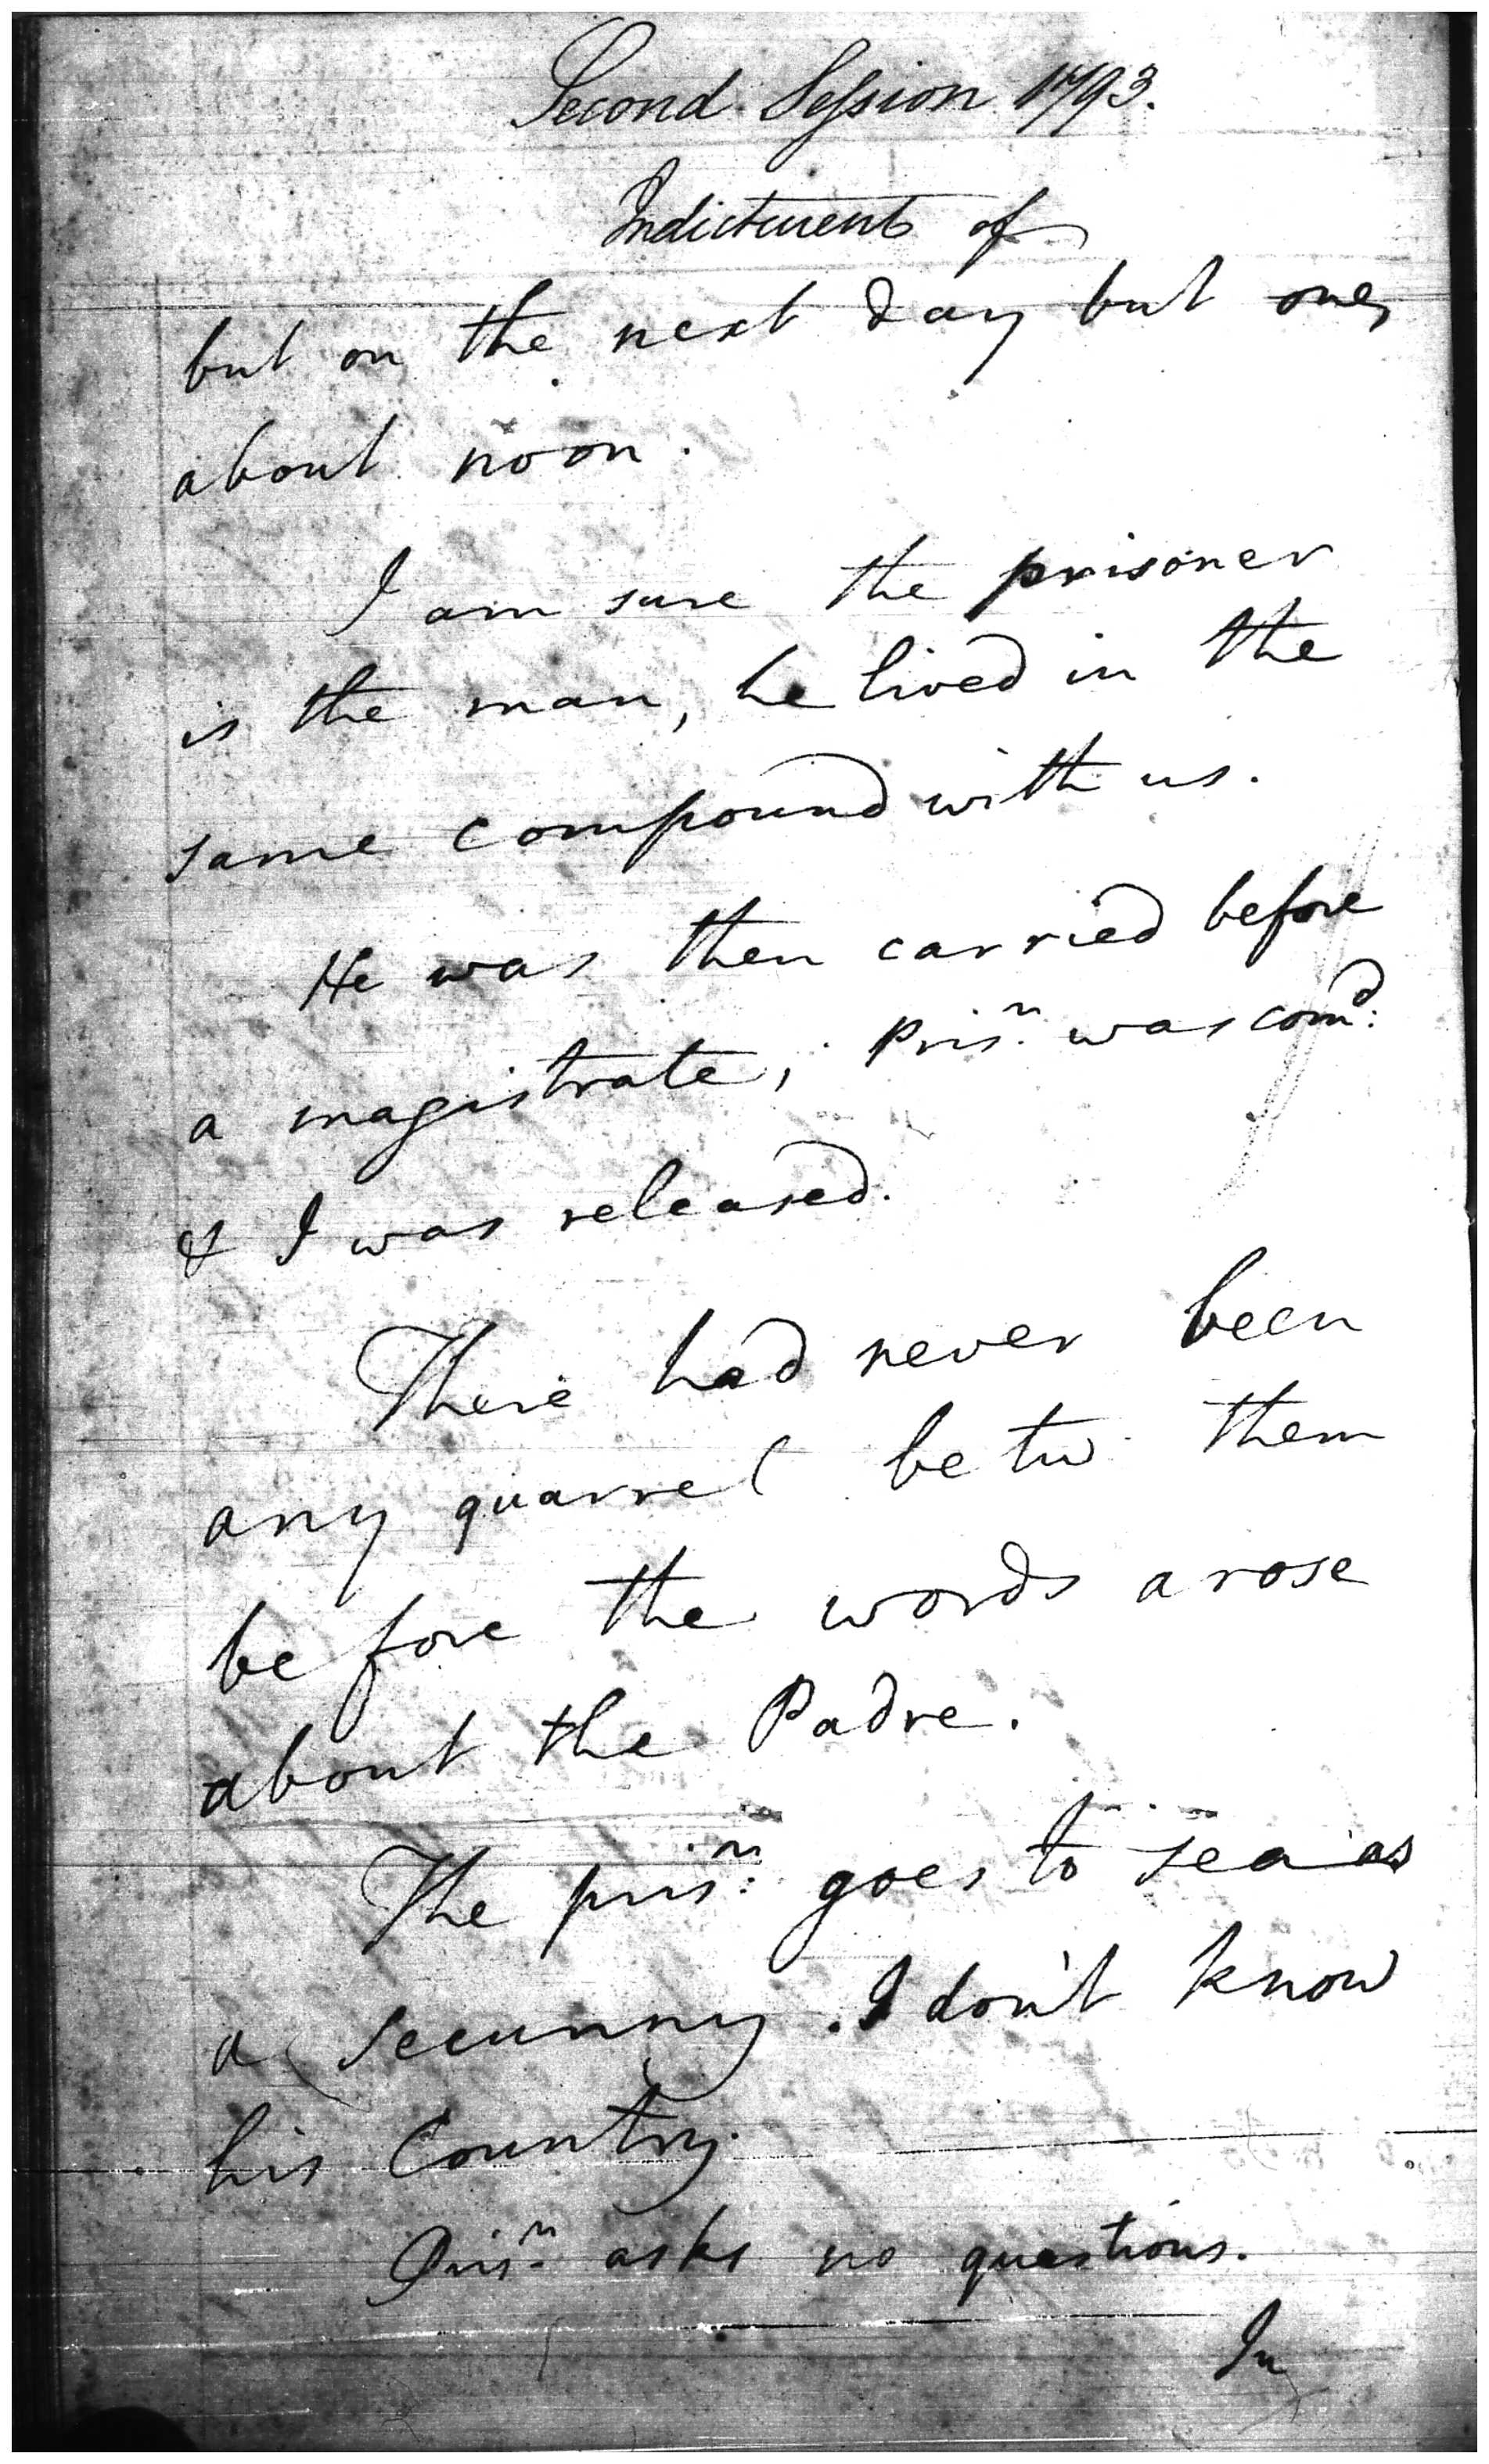 Second Session 1793.
Indictment of
but on the next day but one,
about noon.
I am sure the prisoner
is the man, he lived in the
same compound with us.
He was then carried before
a magistrate, Prisn. was comd:
& I was released.
There had never been
any quarrel betw. them
before the words arose
about the Padre.
The prisn: goes to sea as
a Secunny. I don't know
his Country.
Prisn. asks no questions.
In